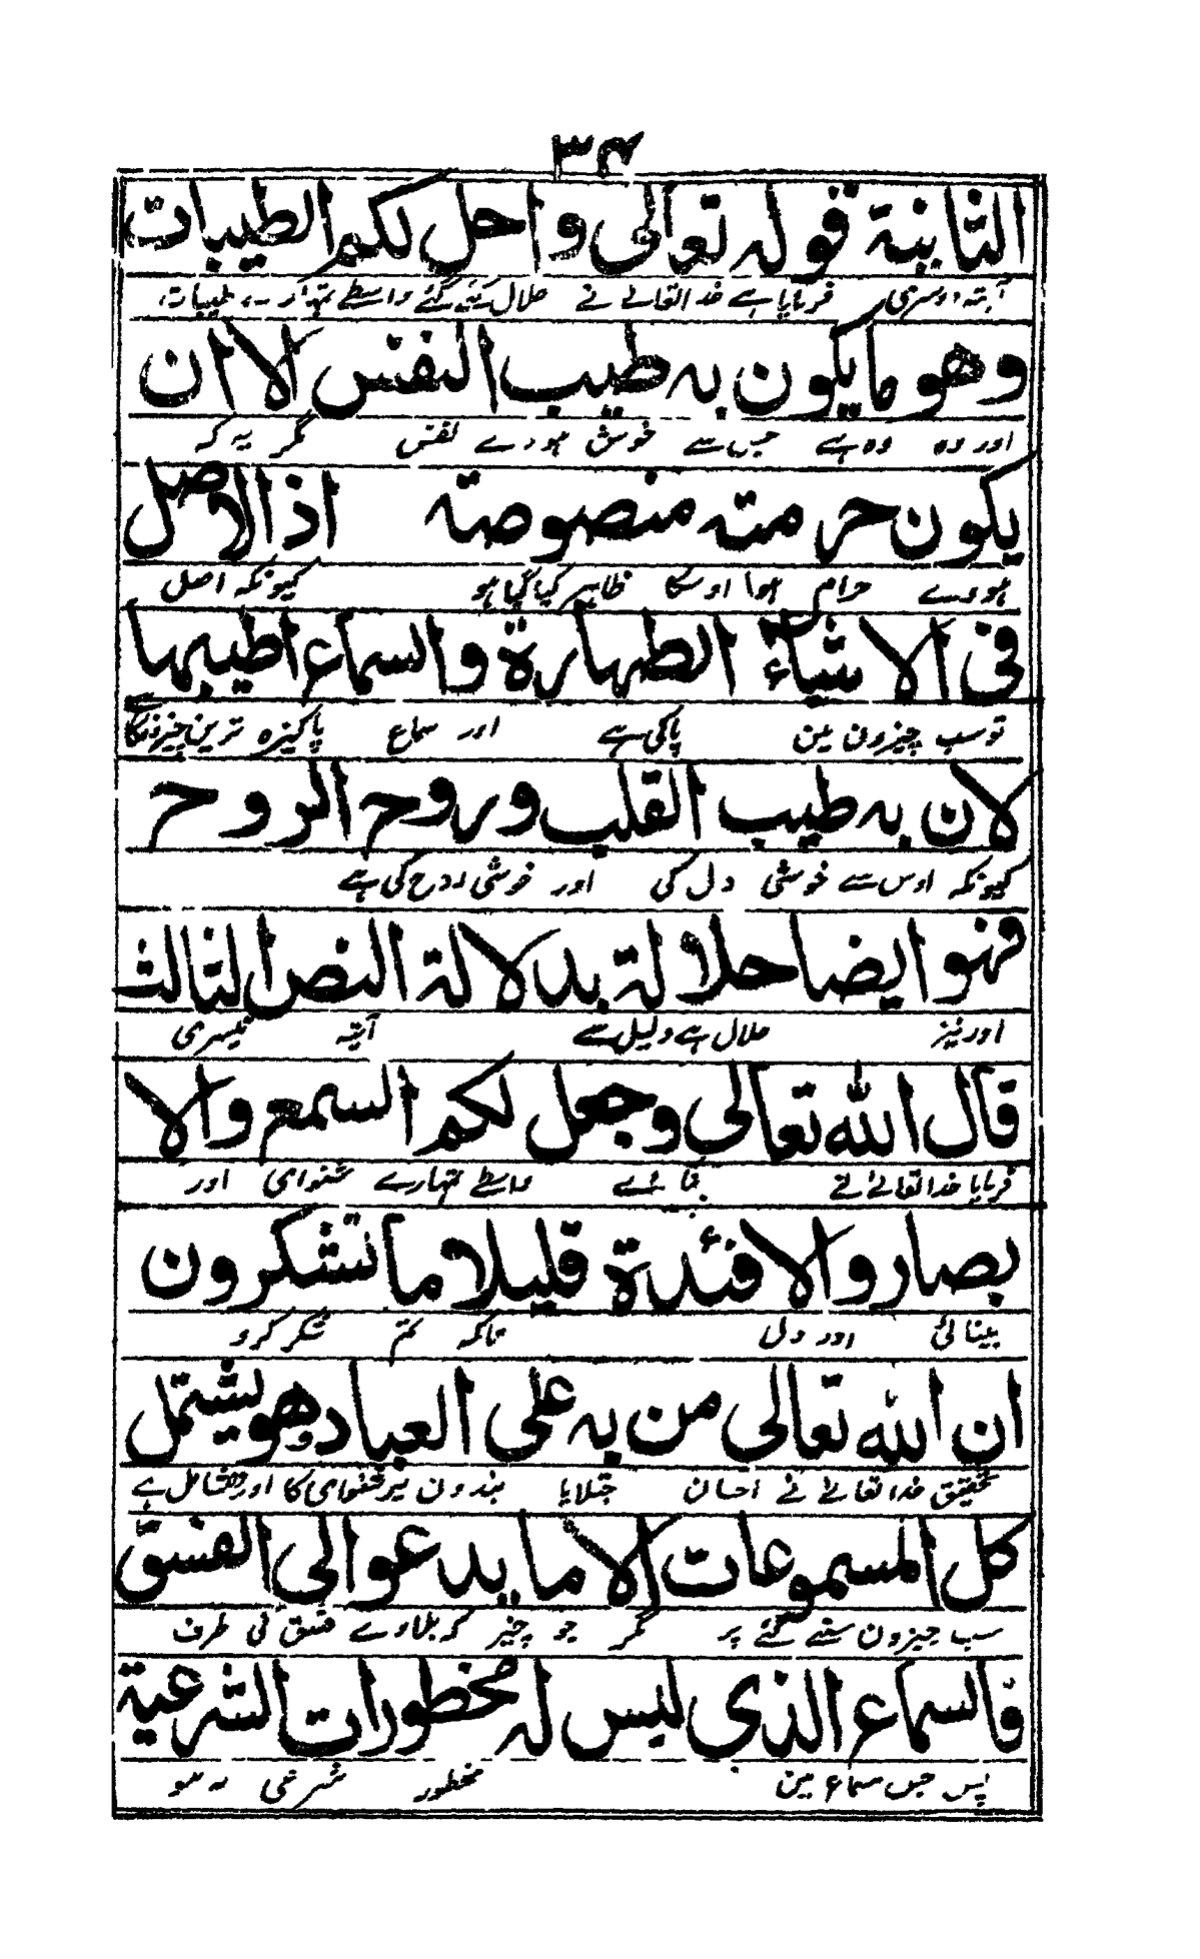 ۳۴
الثانیة قوله تعالی واحل لکم الطیبات
آیته دوسری فرمایا ہے خدا تعالے نے حلال کئے گئے واسطے تمہارے طیبات
وهو ما یکون به طیب النفس الا ان
اور وہ وہ ہے جس سے خوش ہووے نفس مگر یہ کہ
یکون حرمته منصوصة اذ الاصل
ہووے حرام ہوا اوسکا ظاہر کیا گیا ہو کیونکہ اصل
فی الاشیاء الطهارة والسماع اطیبها
تو سب چیزون مین پاکی ہے اور سماع پاکیزہ ترین چیزونکا ہے
لان به طیب القلب وروح الروح
کیونکہ اوس سے خوشی دل کی اور خوشی روح کی ہے
فهو ایضا حلالة بدلالة النص الثالث
اور نیز حلال ہے دلیل سے آیتہ تیسری
قال الله تعالی وجعل لکم السمع والا
فرمایا خدا تعالےٰ نے بنائے واسطے تمہارے شنوای اور
بصار والافئدة قلیلا ما تشکرون
بینائی اور دل تاکہ تم شکر کرو
ان الله تعالی من به علی العباد وهو یشتمل
تحقیق خدا تعالے نے احسان جتلایا بندون پر شنوای کا اور وہ شامل ہے
کل المسموعات الا ما یدعوا لی الفسق
سب چیزون سنے گئے پر مگر جو چیز کہ بلاوے فسق کی طرف
فالسماع الذی لیس له محظورات الشرعیة
پس جس سماع مین محظور شرعی نہ ہو